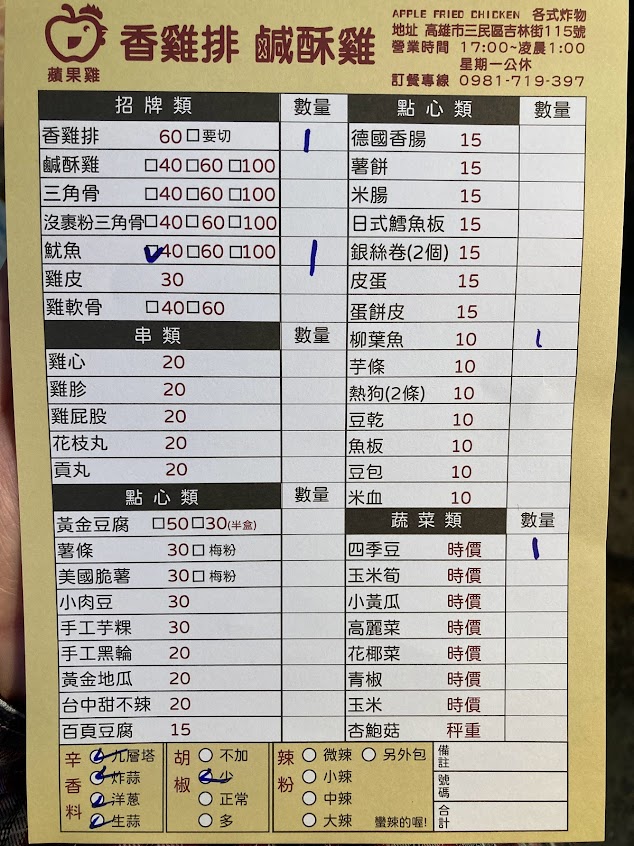 蘋果雞
香雞排 鹹酥雞
APPLE FRIED CHICKEN 各式炸物
地址 高雄市三民區吉林街115號
營業時間 17:00~凌晨1:00
星期一公休
訂餐專線 0981-719-397
招牌類 數量
香雞排 60 □要切 1
鹹酥雞 □40□60□100
三角骨 □40□60□100
沒裹粉三角骨□40□60□100
魷魚 ☑40□60□100 1
雞皮 30
雞軟骨 □40□60
串類 數量
雞心 20
雞胗 20
雞屁股 20
花枝丸 20
貢丸 20
點心類 數量
黃金豆腐 □50□30(半盒)
薯條 30□ 梅粉
美國脆薯 30□ 梅粉
小肉豆 30
手工芋粿 30
手工黑輪 20
黃金地瓜 20
台中甜不辣 20
百頁豆腐 15
點心類 數量
德國香腸 15
薯餅 15
米腸 15
日式鱈魚板 15
銀絲卷(2個) 15
皮蛋 15
蛋餅皮 15
柳葉魚 10 1
芋條 10
熱狗(2條) 10
豆乾 10
魚板 10
豆包 10
米血 10
蔬菜類 數量
四季豆 時價 1
玉米筍 時價
小黃瓜 時價
高麗菜 時價
花椰菜 時價
青椒 時價
玉米 時價
杏鮑菇 秤重
辛香料
九層塔
炸蒜
洋蔥
生蒜
胡椒
不加
少
正常
多
辣粉
微辣 另外包
小辣
中辣
大辣 蠻辣的喔!
備註
號碼
合計